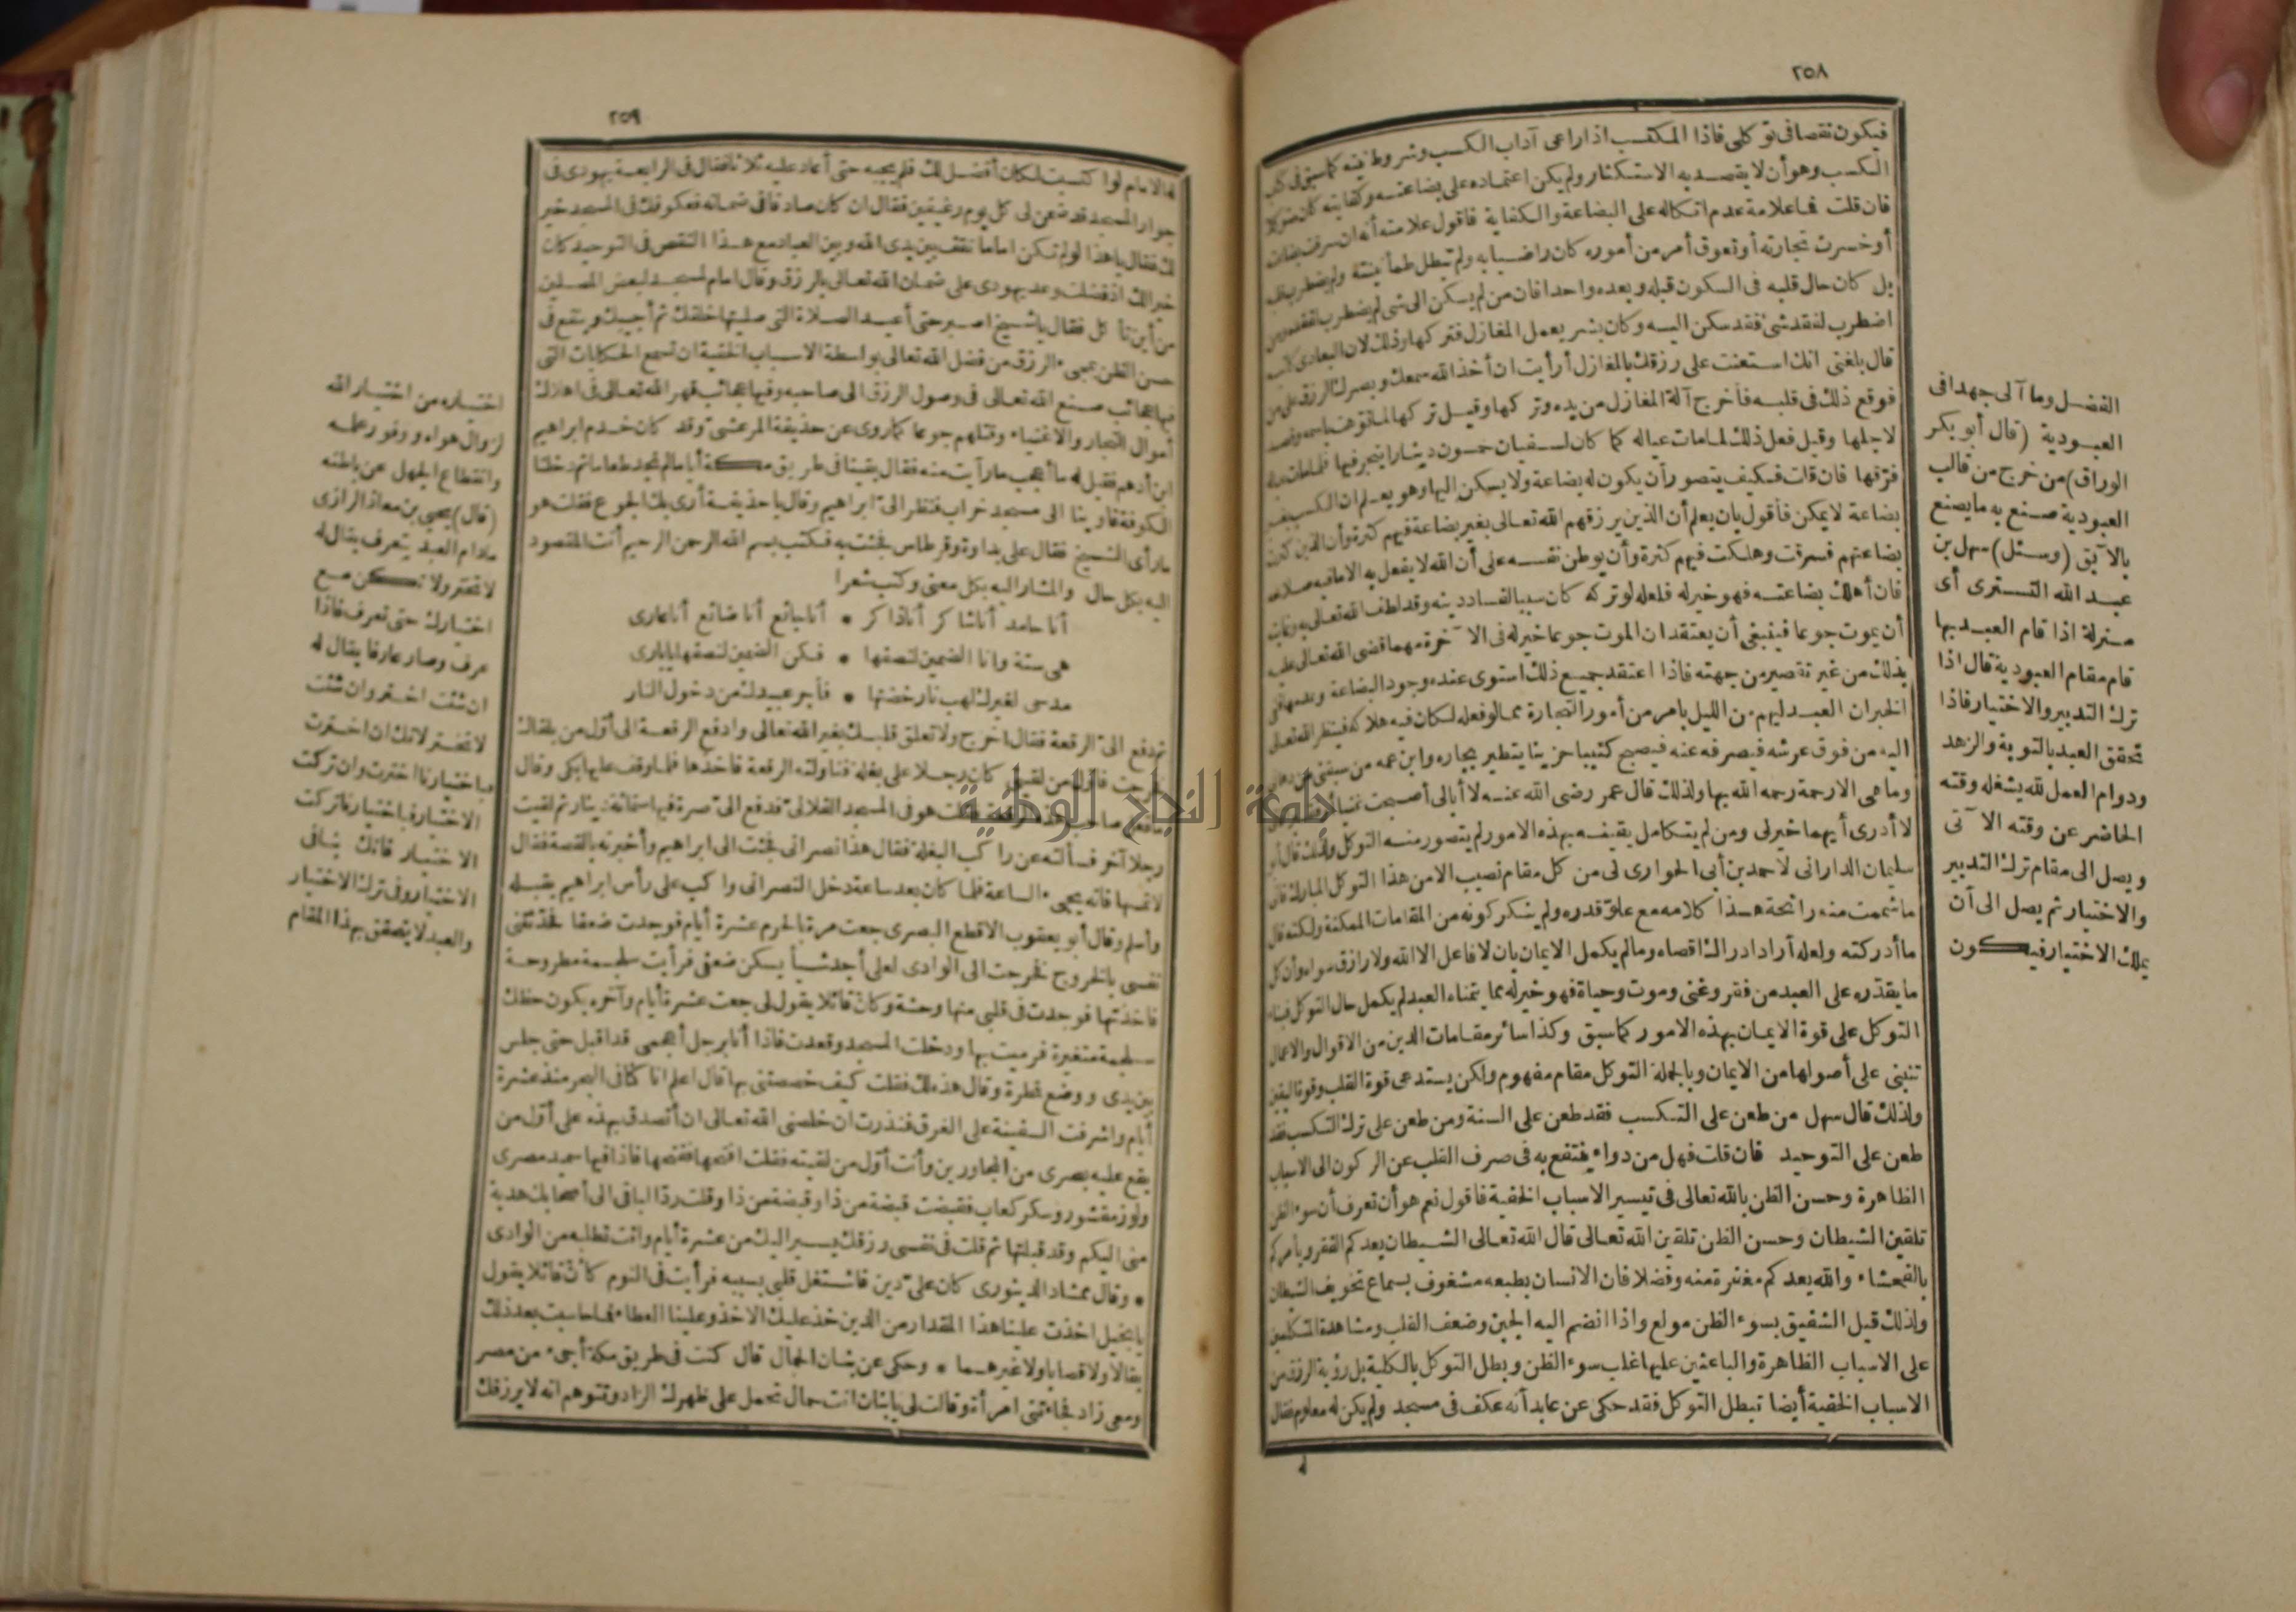 ٢٥٨
فيكون نقصا فى توكله فاذا المكتسب اذا راعى آداب الكسب وشروط نيته كما سبق فى كتاب
الكسب وهو أن لا يقصد به الاستكثار ولم يكن اعتماده على بضاعته وكفايته كان متوكلا
فان قلت فما علامة عدم اتكاله على البضاعة والكفاية فاقول علامته أنه ان سرقت بضاعته
أو خسرت تجارته أو تعوق أمر من أموره كان راضيا به ولم تبطل طمأنينته ولم يضطرب قلبه
بل كان حال قلبه فى السكون قبله وبعده واحدا فان من لم يسكن الى شئ لم يضطرب لفقده ومن
اضطرب لفقد شئ فقد سكن اليه وكان بشر يعمل المغازل فتركها وذلك لان البعادى كاتبه
قال بلغنى انك استعنت على رزقك بالمغازل أرأيت ان أخذ الله سمعك وبصرك الرزق على من
فوقع ذلك فى قلبه فأخرج آلة المغازل من يده وتركها وقيل تركها لما نوهت باسمه وقصد
لاجلها وقيل فعل ذلك لما مات عياله كما كان لسفيان خمسون دينارا يتجر فيها فلما مات عياله
فرّقها فان قلت فكيف يتصور أن يكون له بضاعة ولا يسكن اليها وهو يعلم ان الكسب بغير
بضاعة لا يمكن فأقول بان يعلم أن الذين يرزقهم الله تعالى بغير بضاعة فيهم كثرة وأن الذين كثرت
بضاعتهم فسرقت وهلكت فيهم كثرة وأن يوطن نفسه على أن الله لا يفعل به الا ما فيه صلاحه
فان أهلك بضاعته فهو خير له فلعله لو تركه كان سببا لفساد دينه وقد لطف الله تعالى به وغايته
أن يموت جوعا فينبغى أن يعتقد ان الموت جوعا خير له فى الآخرة مهما قضى الله تعالى عليه
بذلك من غير تقصير من جهته فاذا اعتقد جميع ذلك استوى عنده وجود البضاعة وعدمها ففى
الخبر ان العبد ليهم من الليل بامر من أمور التجارة مما لو فعله لكان فيه هلاكه فينظر الله تعالى
اليه من فوق عرشه فيصرفه عنه فيصبح كئيبا حزينا يتطير بجاره وابن عمه من سبقنى من دهانى
وما هى الا رحمة رحمه الله بها ولذلك قال عمر رضى الله عنه لا أبالى أصبحت غنيا أو فقيرا فانى
لا أدرى أيهما خير لى ومن لم يتكامل يقينه بهذه الامور لم يتصور منه التوكل ولذلك قال أبو
سليمان الدارانى لاحمد بن أبى الحوارى لى من كل مقام نصيب الا من هذا التوكل المبارك فانى
ما شممت منه رائحة هذا كلامه مع علوّ قدره ولم ينكر كونه من المقامات الممكنة ولكنه قال
ما أدركته ولعله أراد ادراك أقصاه وما لم يكمل الايمان بان لا فاعل الا الله ولا رازق سواه وأن كل
ما يقدّره على العبد من فقر وغنى وموت وحياة فهو خير له مما يتمناه العبد لم يكمل حال التوكل فبناء
التوكل على قوة الايمان بهذه الامور كما سبق وكذا سائر مقامات الدين من الاقوال والاعمال
تنبنى على أصولها من الايمان وبالجملة التوكل مقام مفهوم ولكن يستدعى قوة القلب وقوة اليقين
ولذلك قال سهل من طعن على التكسب فقد طعن على السنة ومن طعن على ترك التكسب فقد
طعن على التوحيد فان قلت فهل من دواء ينتفع به فى صرف القلب عن الركون الى الاسباب
الظاهرة وحسن الظن بالله تعالى فى تيسير الاسباب الخفية فاقول نعم هو أن تعرف أن سوء الظن
تلقين الشيطان وحسن الظن تلقين الله تعالى قال الله تعالى الشيطان يعدكم الفقر ويأمركم
بالفحشاء والله يعدكم مغفرة منه وفضلا فان الانسان بطبعه مشغوف بسماع تخويف الشيطان
ولذلك قيل الشفيق بسوء الظن مولع واذا انضم اليه الجبن وضعف القلب ومشاهدة المتكلين
على الاسباب الظاهرة والباعثين عليها غلب سوء الظن وبطل التوكل بالكلية بل رؤية الرزق من
الاسباب الخفية أيضا تبطل التوكل فقد حكى عن عابد أنه عكف فى مسجد ولم يكن له معلوم فقال
الفضل وما آلى جهدا فى
العبودية (قال أبو بكر
الوراق) من خرج من قالب
العبودية صنع به ما يصنع
بالآبق (وسئل) سهل بن
عبد الله التسترى أى
منزلة اذا قام العبد بها
قام مقام العبودية قال اذا
ترك التدبير والاختيار فاذا
تحقق العبد بالتوبة والزهد
ودوام العمل لله يشغله وقته
الحاضر عن وقته الآتى
ويصل الى مقام ترك التدبير
والاختيار ثم يصل الى أن
يملك الاختيار فيكون
٢٥٩
له الامام لو اكتسبت لكان أفضل لك فلم يجبه حتى أعاد عليه ثلاثا فقال فى الرابعة يهودى فى
جوار المسجد قد ضمن لى كل يوم رغيفين فقال ان كان صادقا فى ضمانه فعكوفك فى المسجد خير
لك فقال يا هذا لو لم تكن اماما تقف بين يدى الله وبين العباد مع هذا النقص فى التوحيد كان
خيرا لك اذ فضلت وعد يهودى على ضمان الله تعالى بالرزق وقال امام لمسجد لبعض المصلين
من أين تأكل فقال يا شيخ اصبر حتى أعيد الصلاة التى صليتها خلفك ثم أجيبك وينفع فى
حسن الظن بمجىء الرزق من فضل الله تعالى بواسطة الاسباب الخفية ان تسمع الحكايات التى
فيها عجائب صنع الله تعالى فى وصول الرزق الى صاحبه وفيها عجائب قهر الله تعالى فى اهلاك
أموال التجار والاغنياء وقتلهم جوعا كما روى عن حذيفة المرعشىّ وقد كان خدم ابراهيم
ابن أدهم فقيل له ما أعجب ما رأيت منه فقال بقينا فى طريق مكة أيا ما لم نجد طعاما ثم دخلنا
الكوفة فأوينا الى مسجد خراب فنظر الىّ ابراهيم وقال يا حذيفة أرى بك الجوع فقلت هو
ما رأى الشيخ فقال على بدواة وقرطاس فجئت به فكتب بسم الله الرحمن الرحيم أنت المقصود
اليه بكل حال والمشار اليه بكل معنى وكتب شعرا
أنا حامد أنا شاكر أنا ذاكر * أنا جائع أنا ضائع أنا عارى
هى ستة وانا الضمين لنصفها * فكن الضمين لنصفها يا بارى
مدحى لغيرك لهب نار خضتها * فأجر عبيدك من دخول النار
ثم دفع الىّ الرقعة فقال اخرج ولا تعلق قلبك بغير الله تعالى وادفع الرقعة الى أوّل من يلقاك
فخرجت فأوّل من لقينى كان رجلا على بغلة فناولته الرقعة فأخذها فلما وقف عليها بكى وقال
ما فعل صاحب هذه الرقعة فقلت هو فى المسجد الفلانى فدفع الىّ صرة فيها ستمائة دينار ثم لقيت
رجلا آخر فسألته عن راكب البغلة فقال هذا نصرانى فجئت الى ابراهيم وأخبرته بالقصة فقال
لا تمسها فانه يجىء الساعة فلما كان بعد ساعة دخل النصرانى واكب على رأس ابراهيم يقبله
وأسلم وقال أبو يعقوب الاقطع البصرى جعت مرة بالحرم عشرة أيام فوجدت ضعفا فحدّثتنى
نفسى بالخروج فخرجت الى الوادى لعلى أجد شيأ يسكن ضعفى فرأيت سلجمة مطروحة
فأخذتها فوجدت فى قلبى منها وحشة وكأن قائلا يقول لى جعت عشرة أيام وآخره يكون حظك
سلجمة متغيرة فرميت بها ودخلت المسجد وقعدت فاذا أنا برجل أعجمى قد اقبل حتى جلس
بين يدى ووضع قمطرة وقال هذه لك فقلت كيف خصصتنى بها قال اعلم انا كنا فى البحر منذ عشرة
أيام واشرفت السفينة على الغرق فنذرت ان خلصنى الله تعالى ان أتصدق بهذه على أوّل من
يقع عليه بصرى من المجاورين وأنت أوّل من لقيته فقلت افتحها ففتحها فاذا فيها سميد مصرى
ولوز مقشور وسكر كعاب فقبضت قبضة من ذا وقبضة من ذا وقلت ردّ الباقى الى أصحابك هدية
منى اليكم وقد قبلتها ثم قلت فى نفسى رزقك يسير اليك من عشرة أيام وانت تطلبه من الوادى
* وقال ممشاد الدينورى كان علىّ دين فاشتغل قلبى بسببه فرأيت فى النوم كأنّ قائلا يقول
يا بخيل اخذت علينا هذا المقدار من الدين خذ عليك الاخذ وعلينا العطاء فما حاسبت بعد ذلك
بقالا ولا قصابا ولا غيرهما * وحكى عن بنان الحمال قال كنت فى طريق مكة أجىء من مصر
ومعى زاد فجاءتنى امرأة وقالت لى يا بنان انت حمال تحمل على ظهرك الزاد وتتوهم انه لا يرزقك
اختياره من اختيار الله
لزوال هواه ووفور علمه
وانقطاع الجهل عن باطنه
(قال) يحيى بن معاذ الرازى
مادام العبد يتعرف يقال له
لا تختر ولا تكن مع
اختيارك حتى تعرف فاذا
عرف وصار عارفا يقال له
ان شئت اختر وان شئت
لا تختر لانك ان اخترت
فباختيارنا اخترت وان تركت
الاختيار فباختيارنا تركت
الاختيار فانك بنا فى
الاختيار وفى ترك الاختيار
والعبد لا يتحقق بهذا المقام
جامعة النجاح الوطنية